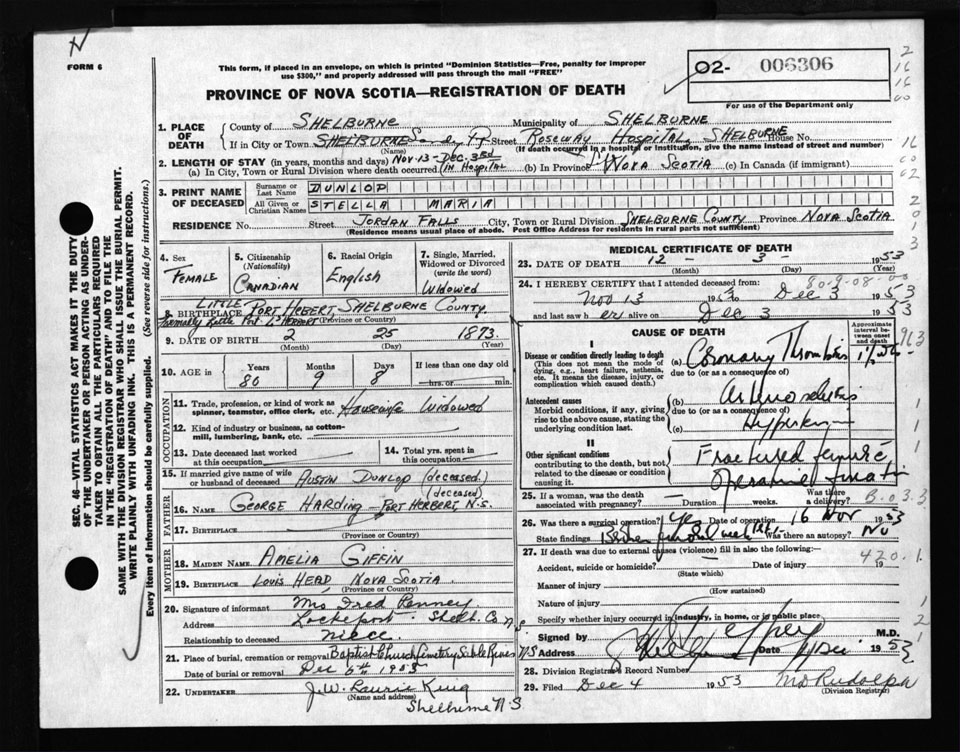 N
FORM 6
This form, if placed in an envelope, on which is printed "Dominion Statistics—Free, penalty for improper
use $300," and properly addressed will pass through the mail "FREE"
PROVINCE OF NOVA SCOTIA—REGISTRATION OF DEATH
02- 006306
For use of the Department only
1. PLACE OF DEATH
County of SHELBURNE Municipality of SHELBURNE
If in City or Town SHELBURNE Street ROSEWAY HOSPITAL, SHELBURNE House No.
(Name) (If death occurred in a hospital or institution, give the name instead of street and number)
2. LENGTH OF STAY (in years, months and days) NOV-13-DEC-3
(a) In City, Town or Rural Division where death occurred (IN HOSPITAL (b) In Province NOVA SCOTIA (c) In Canada (if immigrant)
3. PRINT NAME OF DECEASED
Surname or Last Name DUNLOP
All Given or Christian Names STELLA MARIA
RESIDENCE No. Street JORDAN FALLS City, Town or Rural Division SHELBURNE COUNTY Province NOVA SCOTIA
(Residence means usual place of abode. Post Office Address for residents in rural parts not sufficient)
4. Sex FEMALE
5. Citizenship (Nationality) CANADIAN
6. Racial Origin English
7. Single, Married, Widowed or Divorced (write the word) WIDOWED
8. BIRTHPLACE LITTLE PORT HEBERT, SHELBURNE COUNTY
Formally Little Port L'Herbert (Province or Country)
9. DATE OF BIRTH 2 25 1873
(Month) (Day) (Year)
10. AGE in Years Months Days If less than one day old
80 9 8 hrs. or min.
OCCUPATION
11. Trade, profession or kind of work as spinner, teamster, office clerk, etc. Housewife Widowed
12. Kind of industry or business, as cotton-mill, lumbering, bank, etc.
13. Date deceased last worked at this occupation
14. Total yrs. spent in this occupation
15. If married give name of wife or husband of deceased AUSTIN DUNLOP (deceased)
FATHER
16. NAME GEORGE HARDING - PORT HERBERT, N.S. (deceased)
17. BIRTHPLACE
(Province or Country)
MOTHER
18. MAIDEN NAME AMELIA GIFFIN
19. BIRTHPLACE LOUIS HEAD NOVA SCOTIA
(Province or Country)
20. Signature of informant Mrs Fred Penney
Address Lockeport - Shelb. Co N S
Relationship to deceased niece.
21. Place of burial, cremation or removal Baptist Church Cemetery Sable River N S
Date of burial or removal Dec 6th 1953
22. UNDERTAKER J. W. Laurie King
(Name and address)
Shelburne N S
MEDICAL CERTIFICATE OF DEATH
23. DATE OF DEATH 12 - 3 - 1953
(Month) (Day) (Year)
24. I HEREBY CERTIFY that I attended deceased from: 80-9-08
Nov 13 1953 to Dec 3 1953
and last saw her alive on Dec 3 1953
CAUSE OF DEATH
Approximate interval between onset and death
I
Disease or condition directly leading to death
(This does not mean the mode of dying, e.g., heart failure, asthenia, etc. It means the disease, injury, or complication which caused death.)
(a) Coronary Thrombosis
due to (or as a consequence of)
Antecedent causes
Morbid conditions, if any, giving rise to the above cause, stating the underlying condition last.
(b) Arteriosclerosis
due to (or as a consequence of)
(c)
II
Other significant conditions
contributing to the death, but not related to the disease or condition causing it.
Fractured femur
25. If a woman, was the death associated with pregnancy? — Duration weeks. Was there a delivery? B.03.3
26. Was there surgical operation? yes Date of operation 16 Nov 1953
State findings Was there an autopsy? No
27. If death was due to external causes (violence) fill in also the following:—
Accident, suicide or homicide? Date of injury 19
(State which)
420.1
Manner of injury
(How sustained)
Nature of injury
Specify whether injury occurred in industry, in home, or in public place
Signed by M.D.
Address Date 4 Dec 1953
28. Division Registrar's Record Number
29. Filed Dec 4 1953 M D Rudolph
(Division Registrar)
SEC. 46—VITAL STATISTICS ACT MAKES IT THE DUTY
OF THE UNDERTAKER OR PERSON ACTING AS UNDER-
TAKER TO OBTAIN ALL THE PARTICULARS REQUIRED
IN THE "REGISTRATION OF DEATH" AND TO FILE THE
SAME WITH THE DIVISION REGISTRAR WHO SHALL ISSUE THE BURIAL PERMIT.
WRITE PLAINLY WITH UNFADING INK. THIS IS A PERMANENT RECORD.
Every item of information should be carefully supplied. (See reverse side for instructions.)